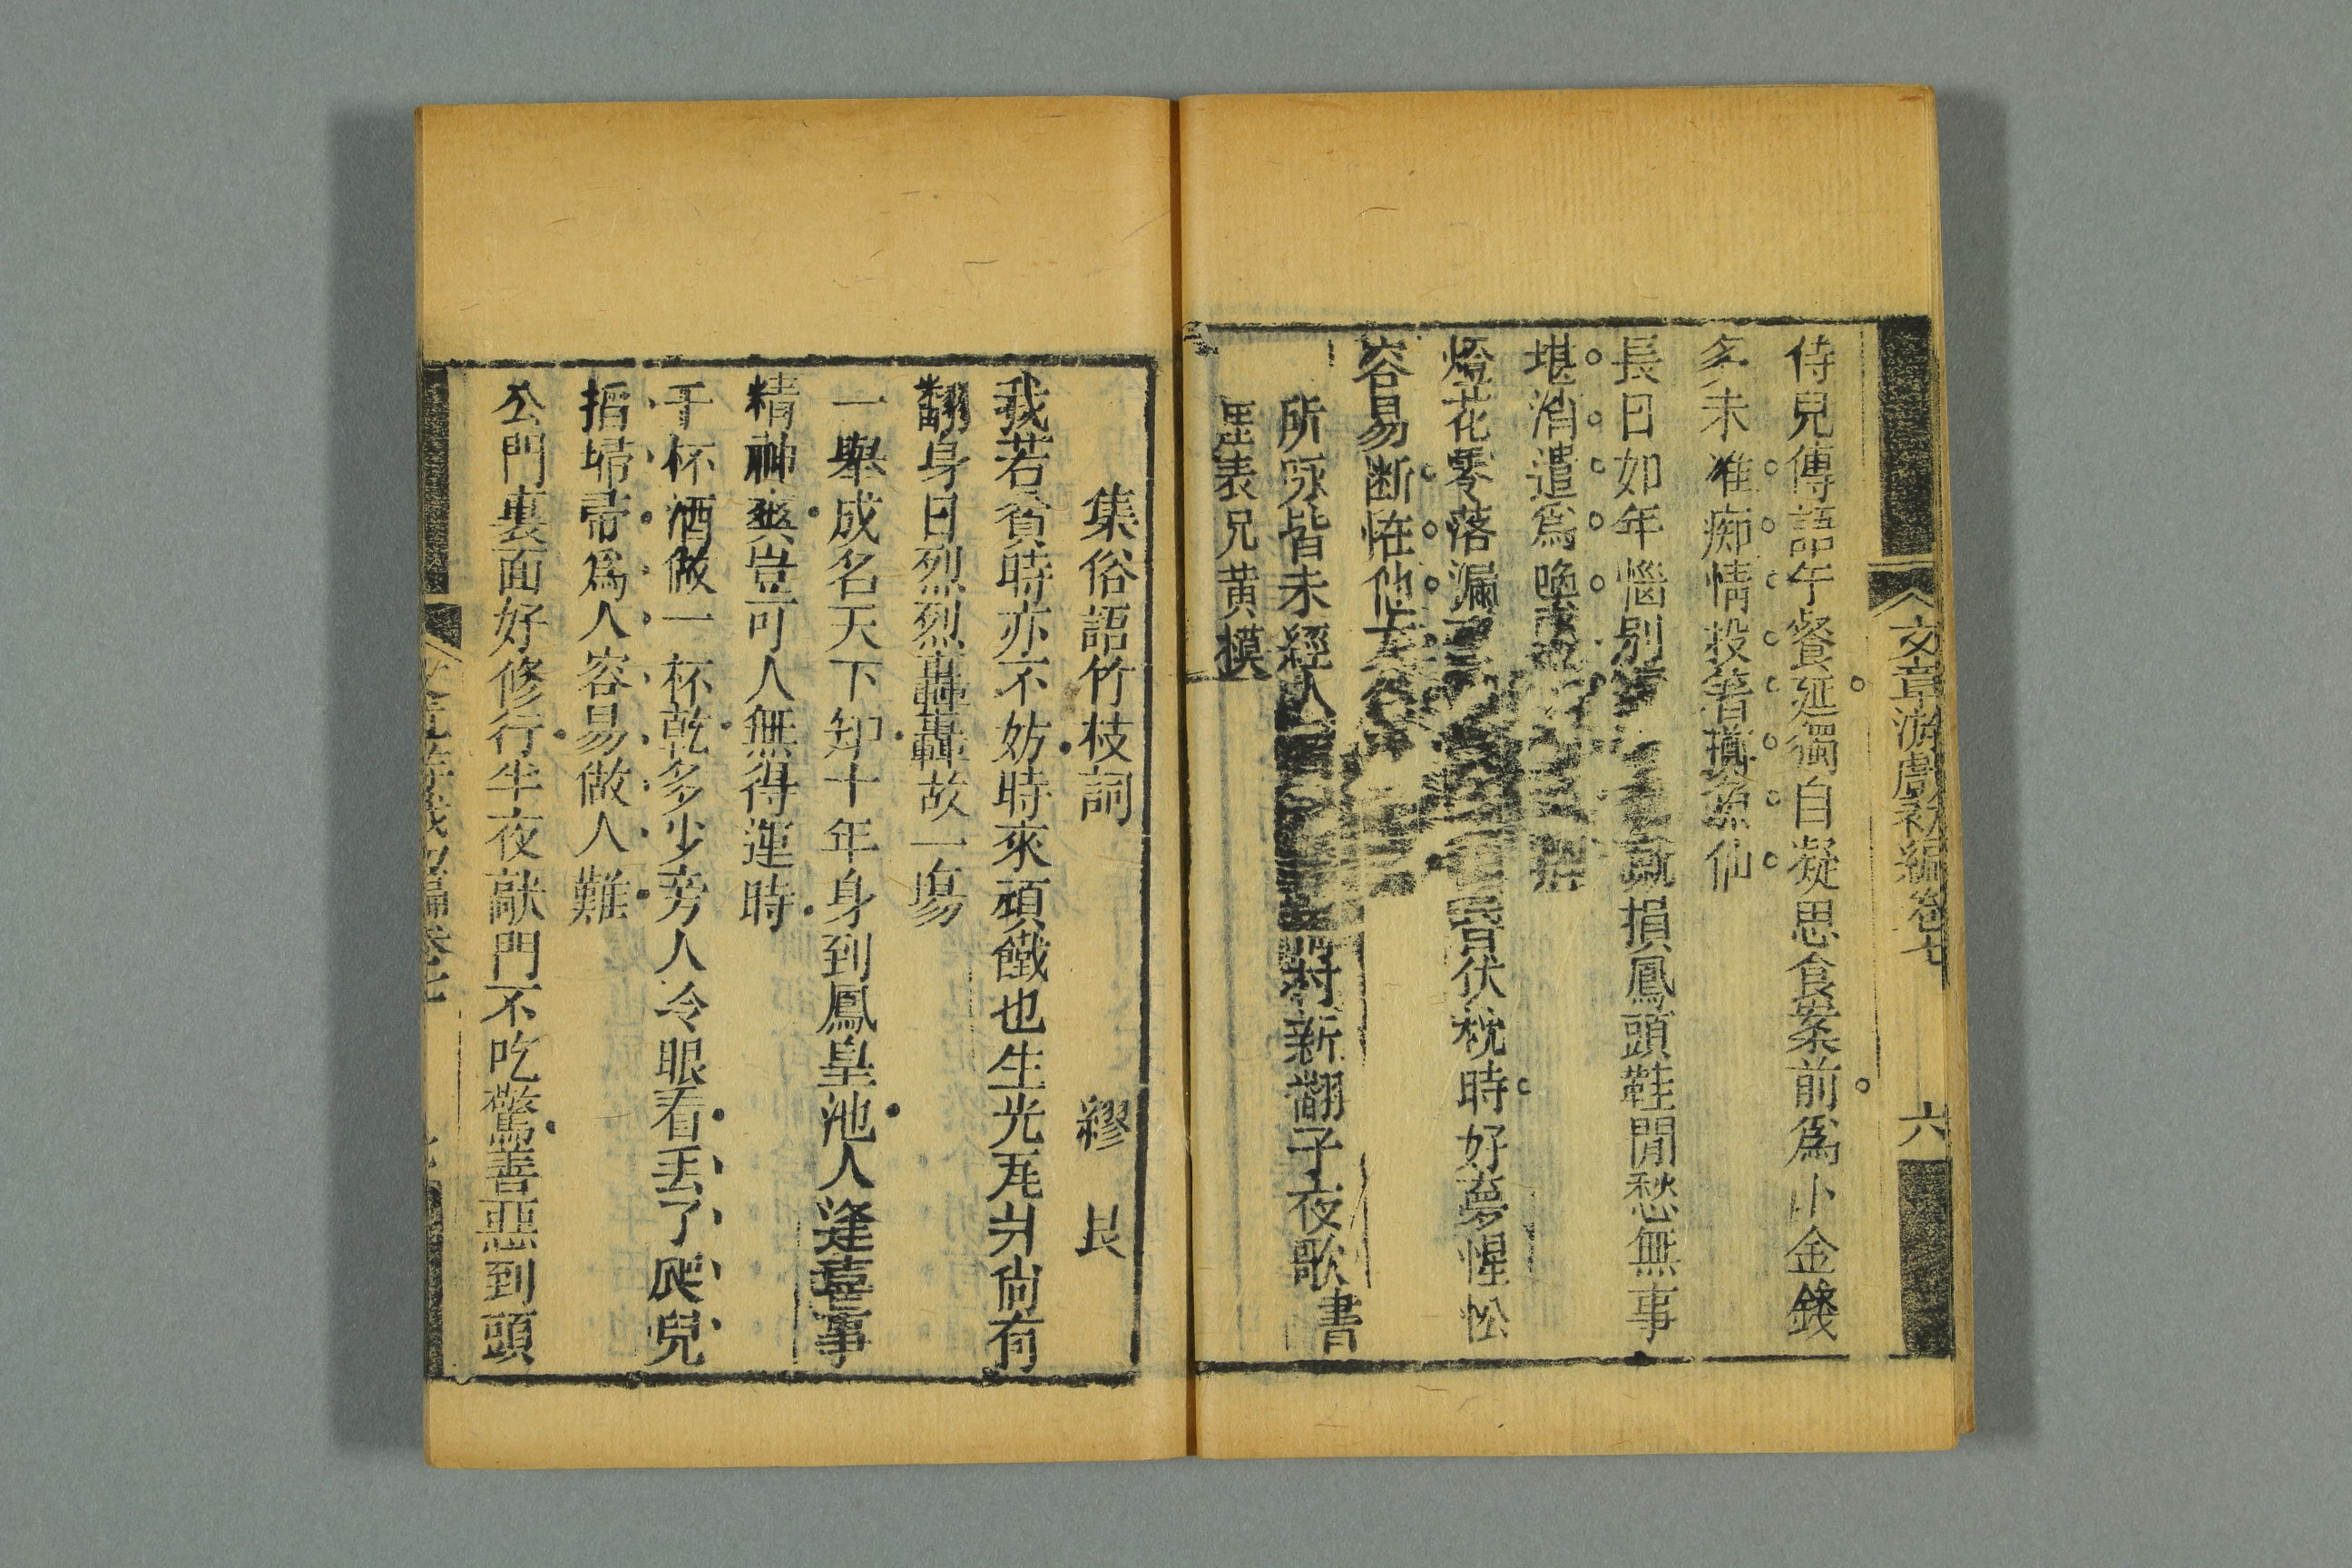 文章游戲初編卷七 六
侍兒傳語午餐延獨自凝思食案前爲卜金錢
多未准痴情投箸擲魚仙
長日如年惱別 損鳳頭鞋閒愁無事
堪消遣爲喚
燈花零落漏 伏枕時好夢惺忪
容易断怪他
所咏皆未經人 將新翻子夜歌書
表兄黃模
集俗語竹枝詞 繆艮
我若貧時亦不妨時來頑鐵也生光瓦爿尙有
翻身日烈烈轟轟故一塲
一舉成名天下知十年身到鳳皇池人逢喜事
精神爽豈可人無得運時
千杯酒做一杯乾多少旁人冷眼看丟了爬兒
掿埽帚爲人容易做人難
公門裏面好修行半夜敲門不吃驚善惡到頭